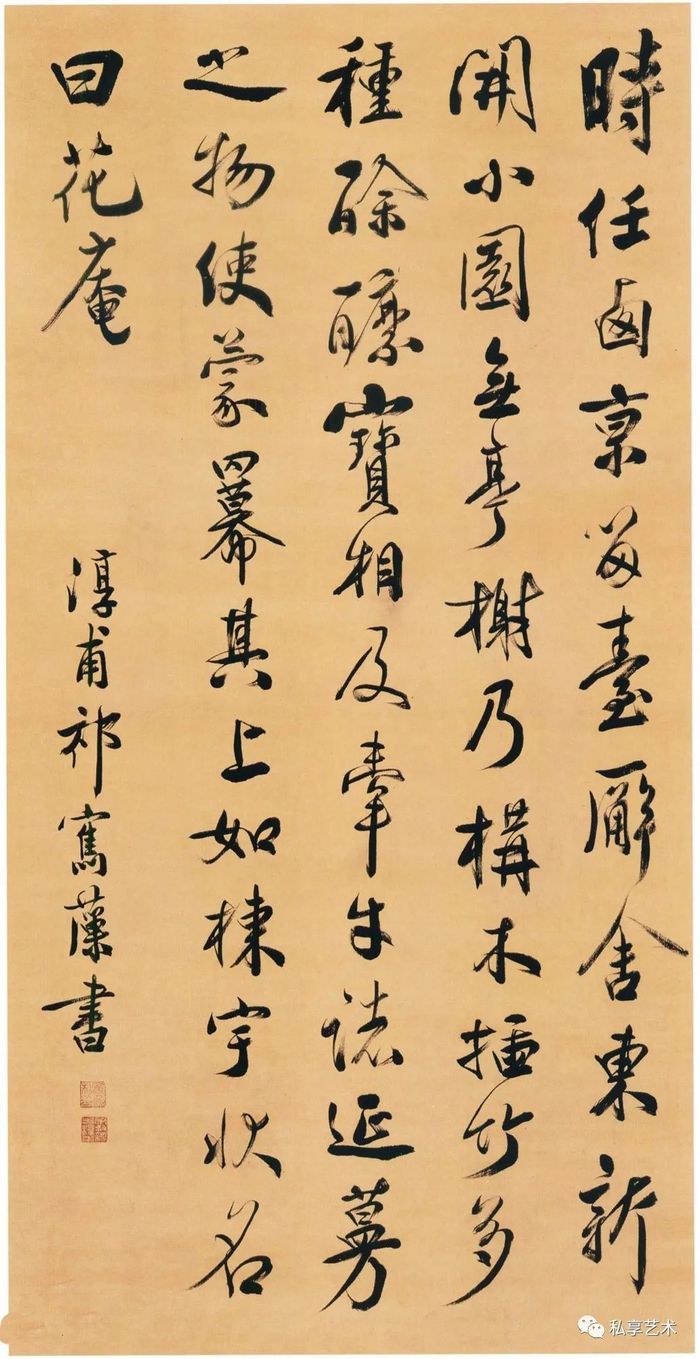 時任卤京留臺廨舍東新
開小園無亭榭乃構木插竹多
種酴醿寶相及牽牛諸延蔓
之物使蒙冪其上如棟宇狀名
曰花庵
淳甫祁寯藻書
私享艺术